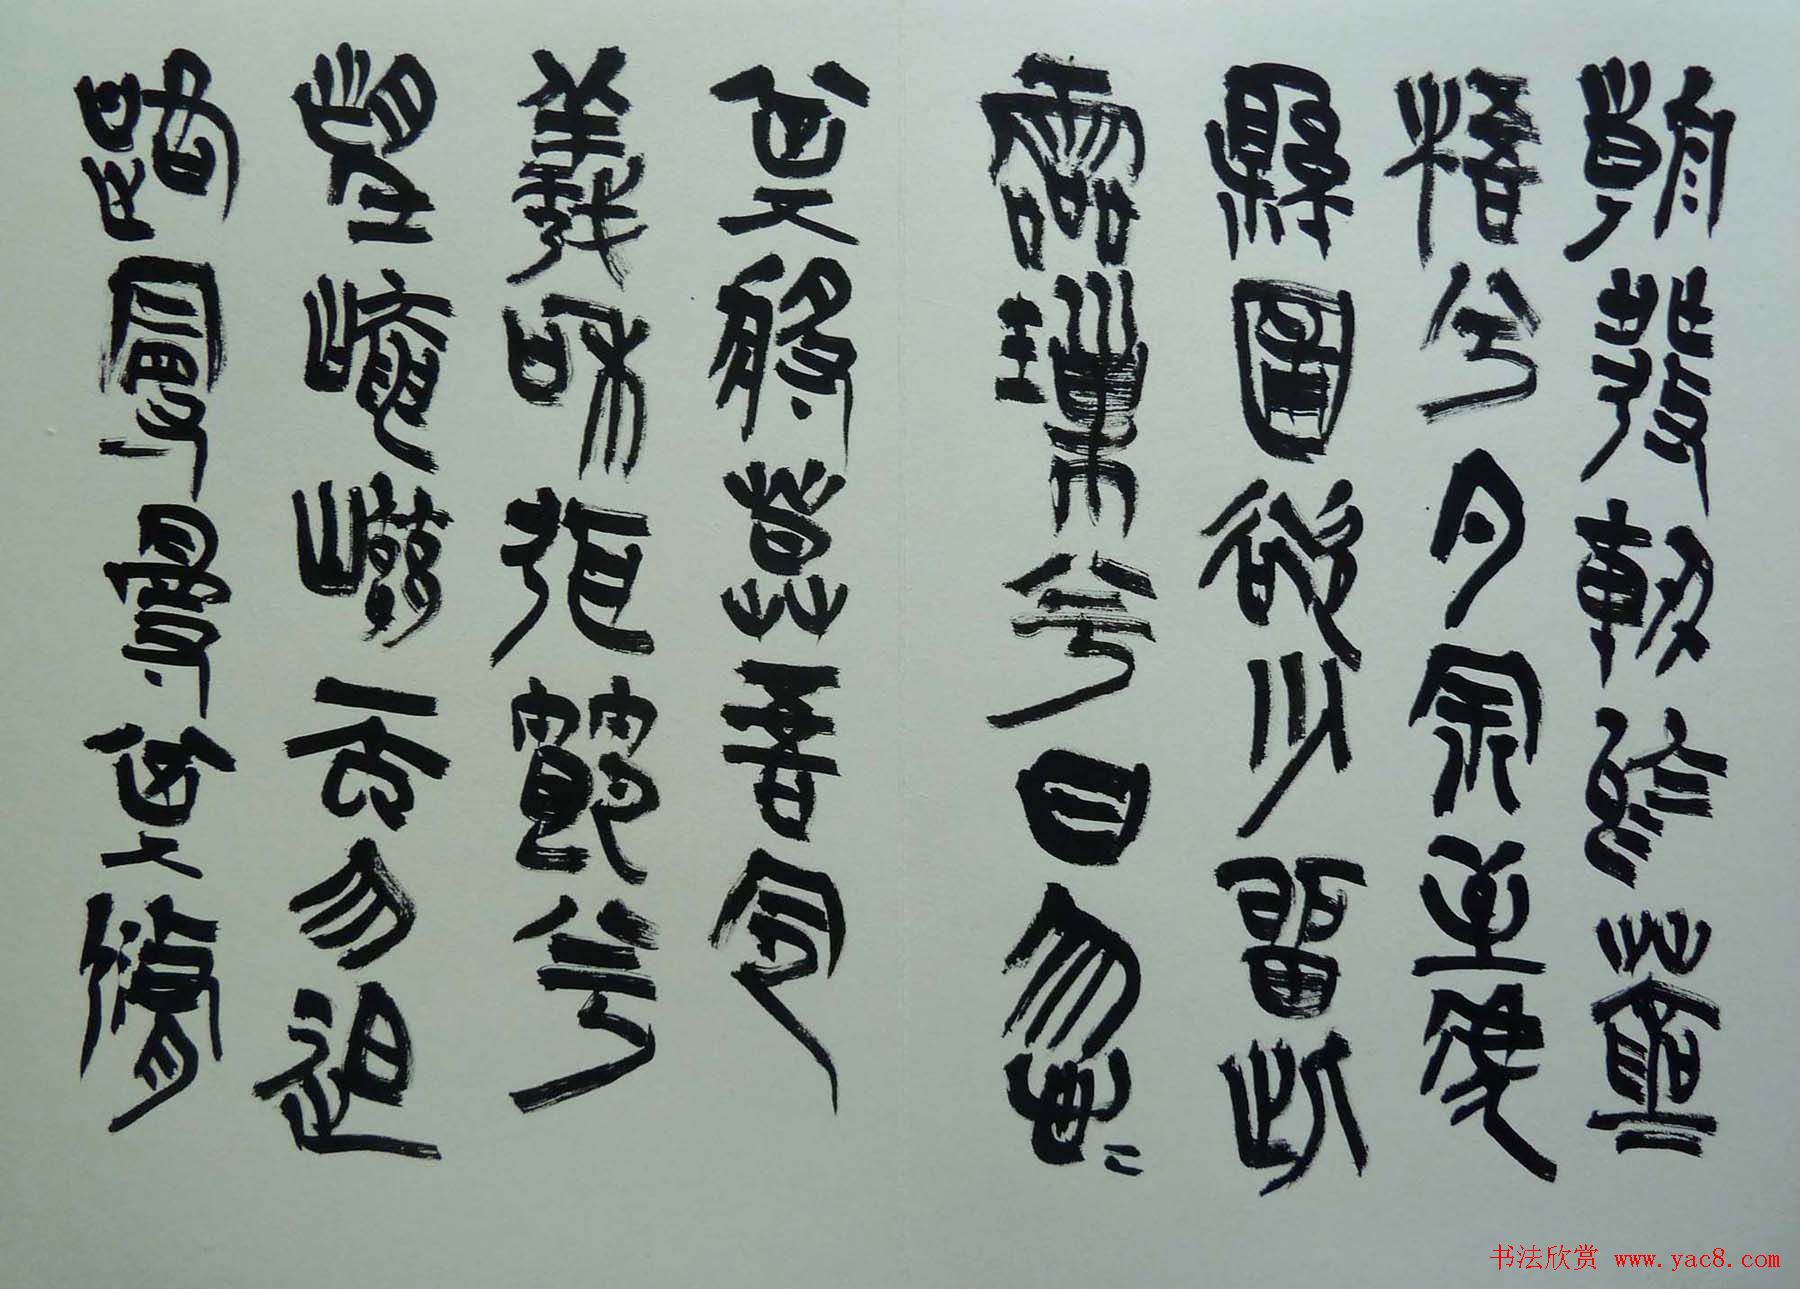 朝發軔於蒼
梧兮夕余至乎
縣圃欲少留此
靈瑣兮日忽〻
其將暮吾令
羲和弭節兮
望崦嵫而勿迫
路曼曼其脩
书法欣赏 www.yac8.com